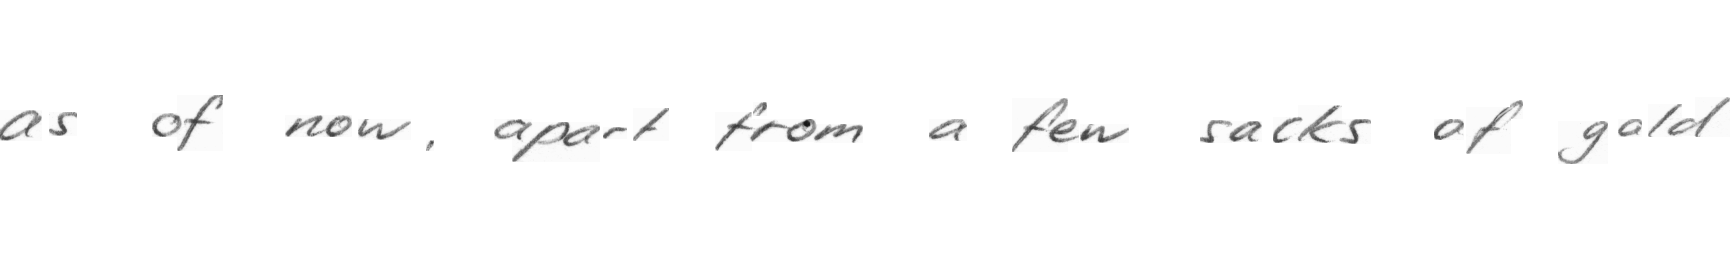 as of now, apart from a few sacks of gold